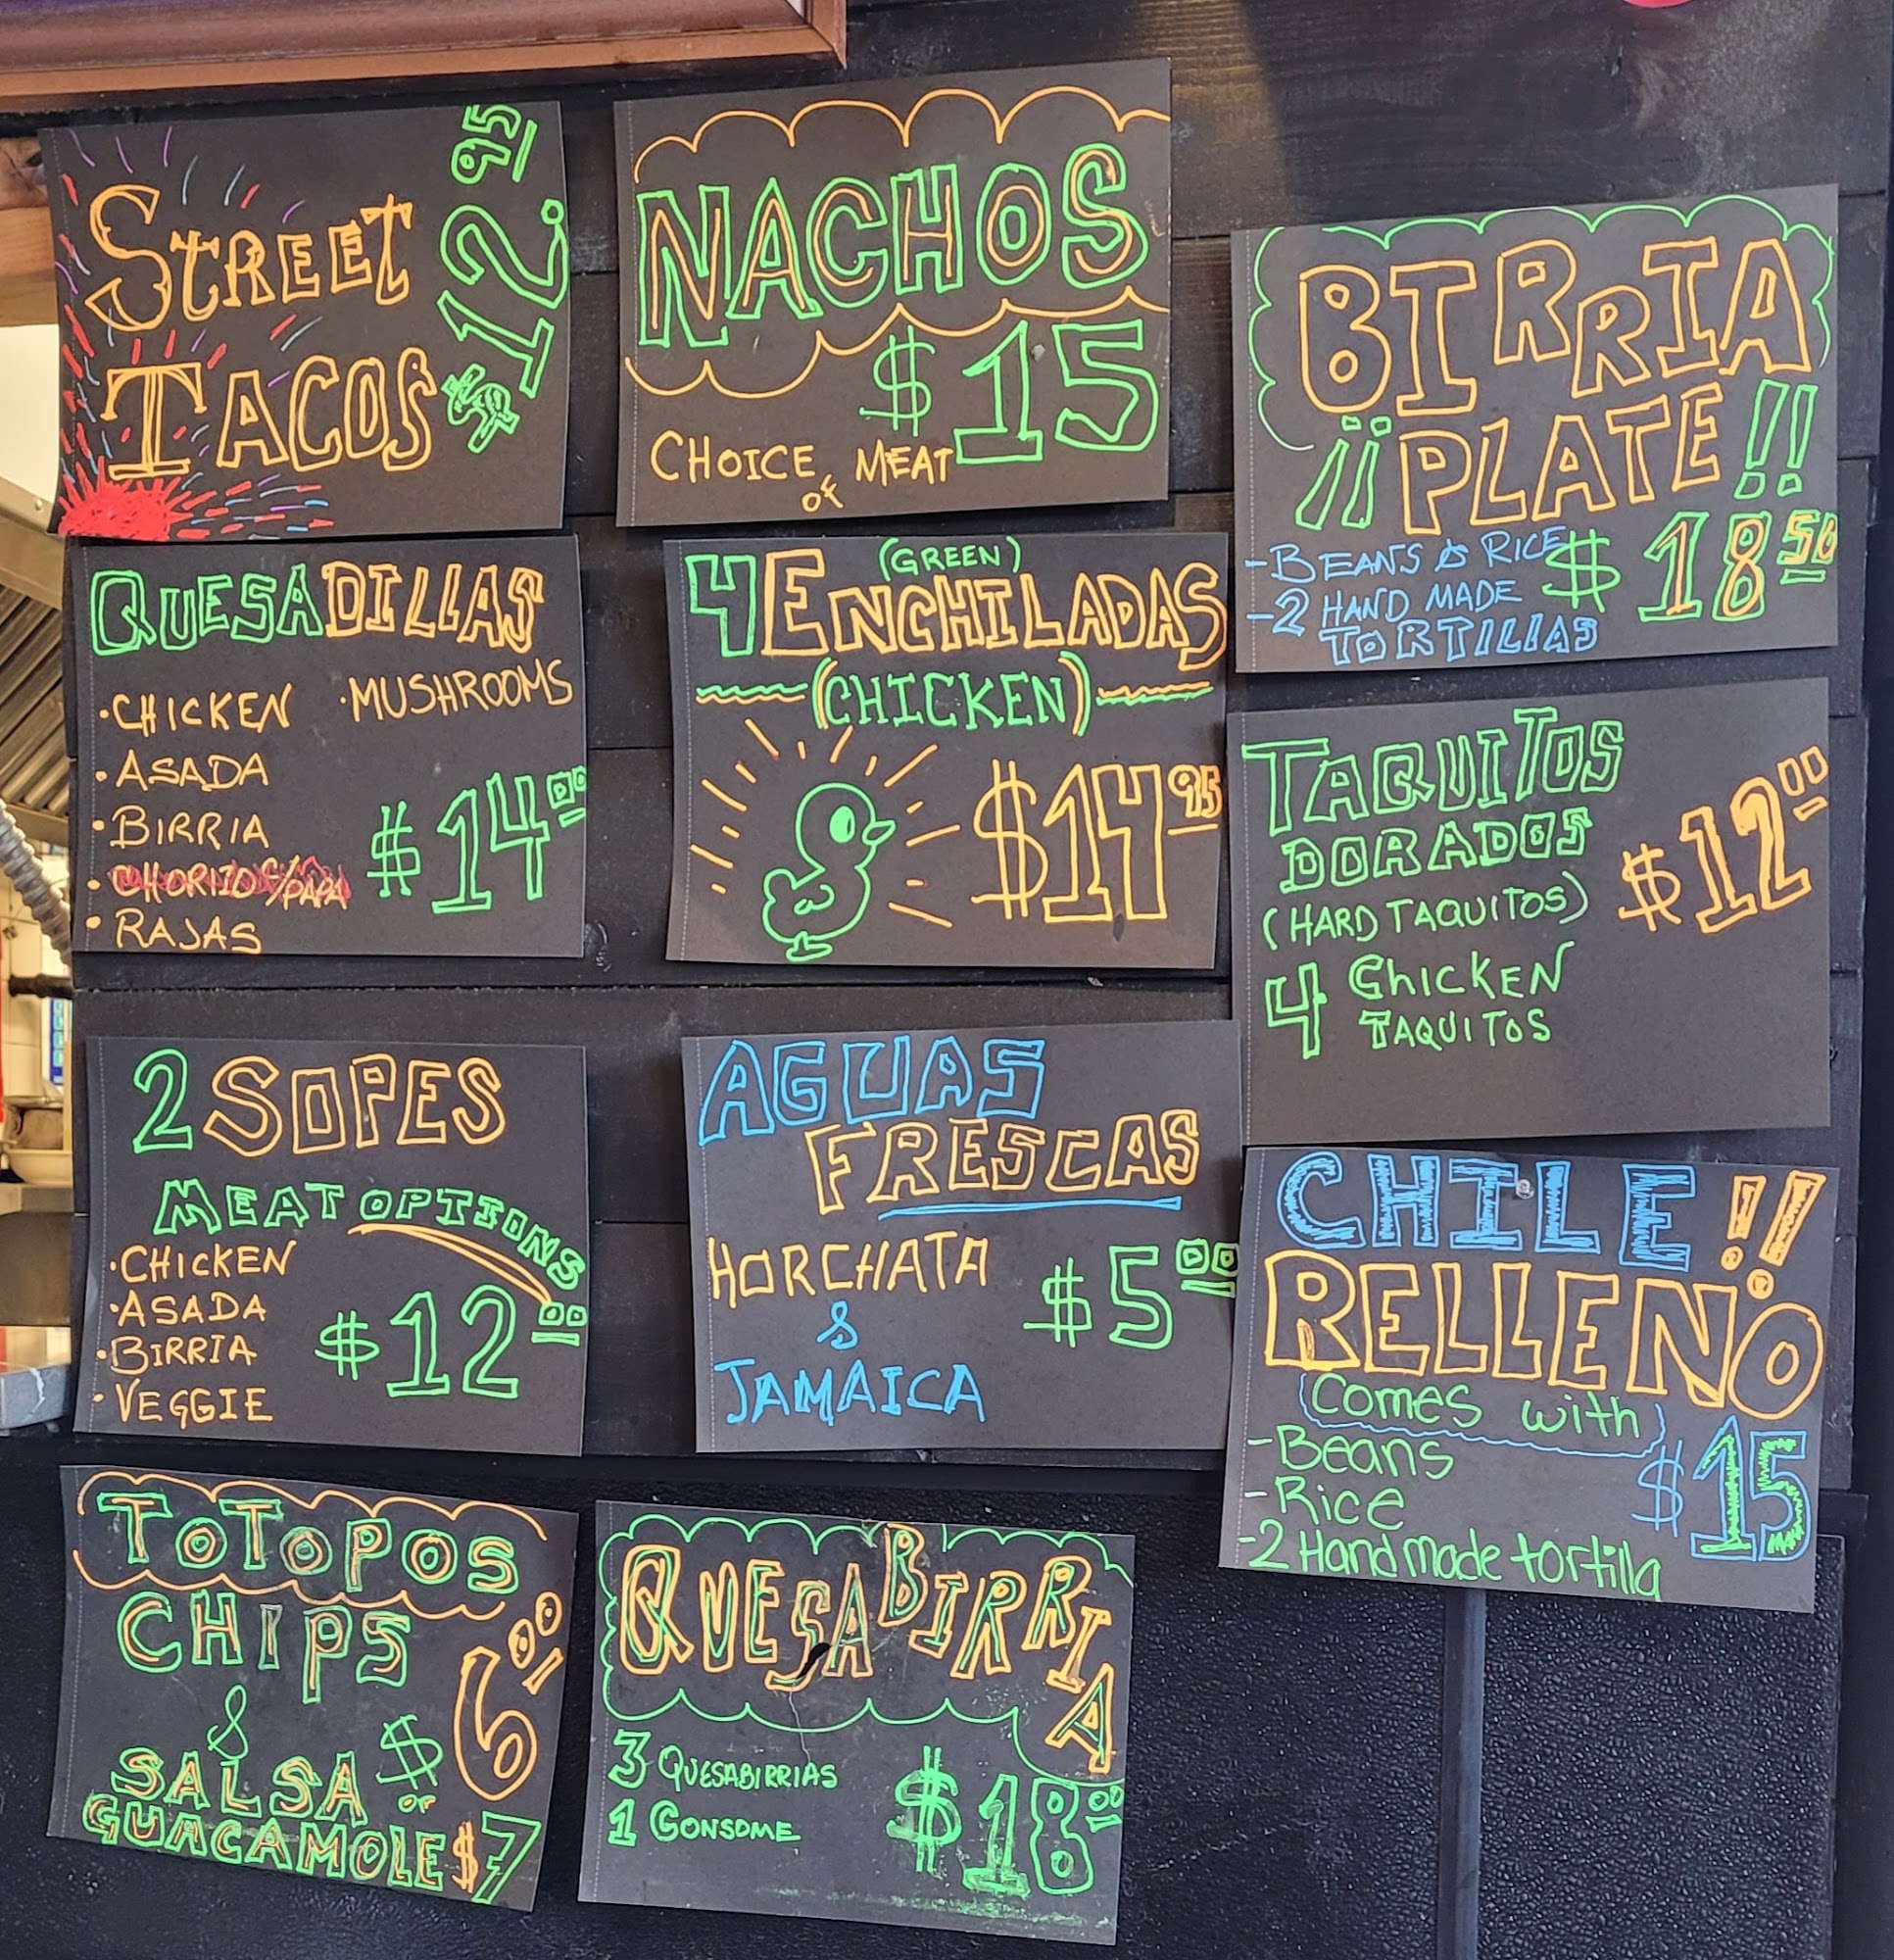 STREET
TACOS
$12.95
NACHOS
$15
CHOICE of MEAT
BIRRIA
¡¡PLATE!!
-BEANS & RICE
-2 HAND MADE
TORTILLAS
$18 50
QUESADILLAS
·CHICKEN
·MUSHROOMS
·ASADA
·BIRRIA
·CHORIZO C/PAPA
·RAJAS
$14 00
(GREEN)
4 ENCHILADAS
(CHICKEN)
$14 95
TAQUITOS
DORADOS
(HARD TAQUITOS)
4 CHICKEN
TAQUITOS
$12 00
2 SOPES
MEAT OPTIONS
·CHICKEN
·ASADA
·BIRRIA
·VEGGIE
$12 00
AGUAS
FRESCAS
HORCHATA
&
JAMAICA
$5 00
CHILE!!
RELLENO
Comes with
-Beans
-Rice
-2 Handmade tortilla
$15
TOTOPOS
CHIPS
&
SALSA $6 00
or
GUACAMOLE $7
QUESABIRRIA
3 QUESABIRRIAS
1 CONSOME
$18 00